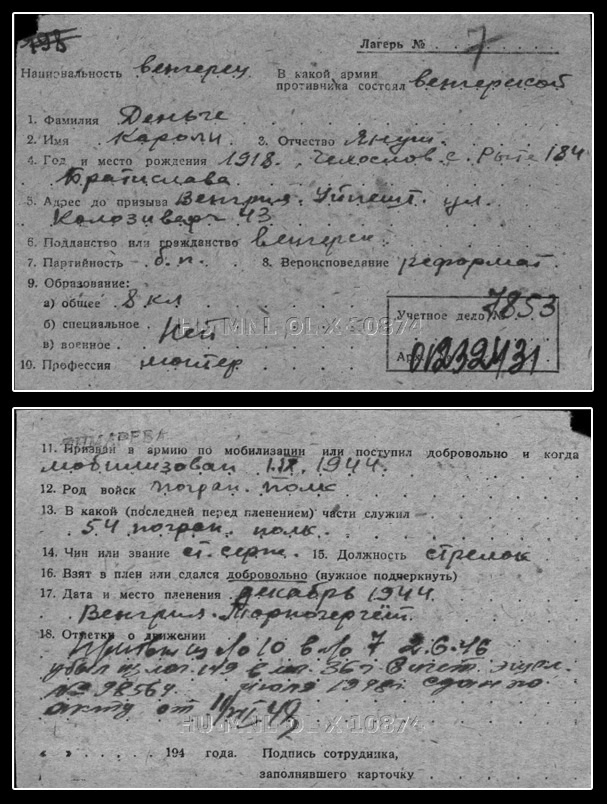 198
Лагерь № 7
Национальность венгерец В какой армии противника состоял венгерской
1. Фамилия Деньче
2. Имя Кароли 3. Отчество Януш
4. Год и место рождения 1918. Чехослов. с. Рыте 184
Братислава
5. Адрес до призыва Венгрия. Уйпешт. ул.
Колозиверч 43
6. Подданство или гражданство венгерск.
7. Партийность б. п. 8. Вероисповедание реформат
9. Образование:
а) общее 8 кл
б) специальное
в) военное Нет
10. Профессия монтер
Учетное дело № 7853
Арх. 01232431
HU MNL OL X 10874
11. Призван в армию по мобилизации или поступил добровольно и когда
мобилизован 1.IX. 1944.
12. Род войск погран. полк
13. В какой (последней перед пленением) части служил
54 погран. полк.
14. Чин или звание ст. серж. 15. Должность стрелок
16. Взят в плен или сдался добровольно (нужное подчеркнуть)
17. Дата и место пленения декабрь 1944
Венгрия.
18. Отметки о движении
из № 10 в № 7 2.6.46
убыл из лаг. 149 в лаг. 367
№ 98564 июля 1948 сдан по
акту от
HU MNL OL X 10874
« » 194 года. Подпись сотрудника,
заполнявшего карточку